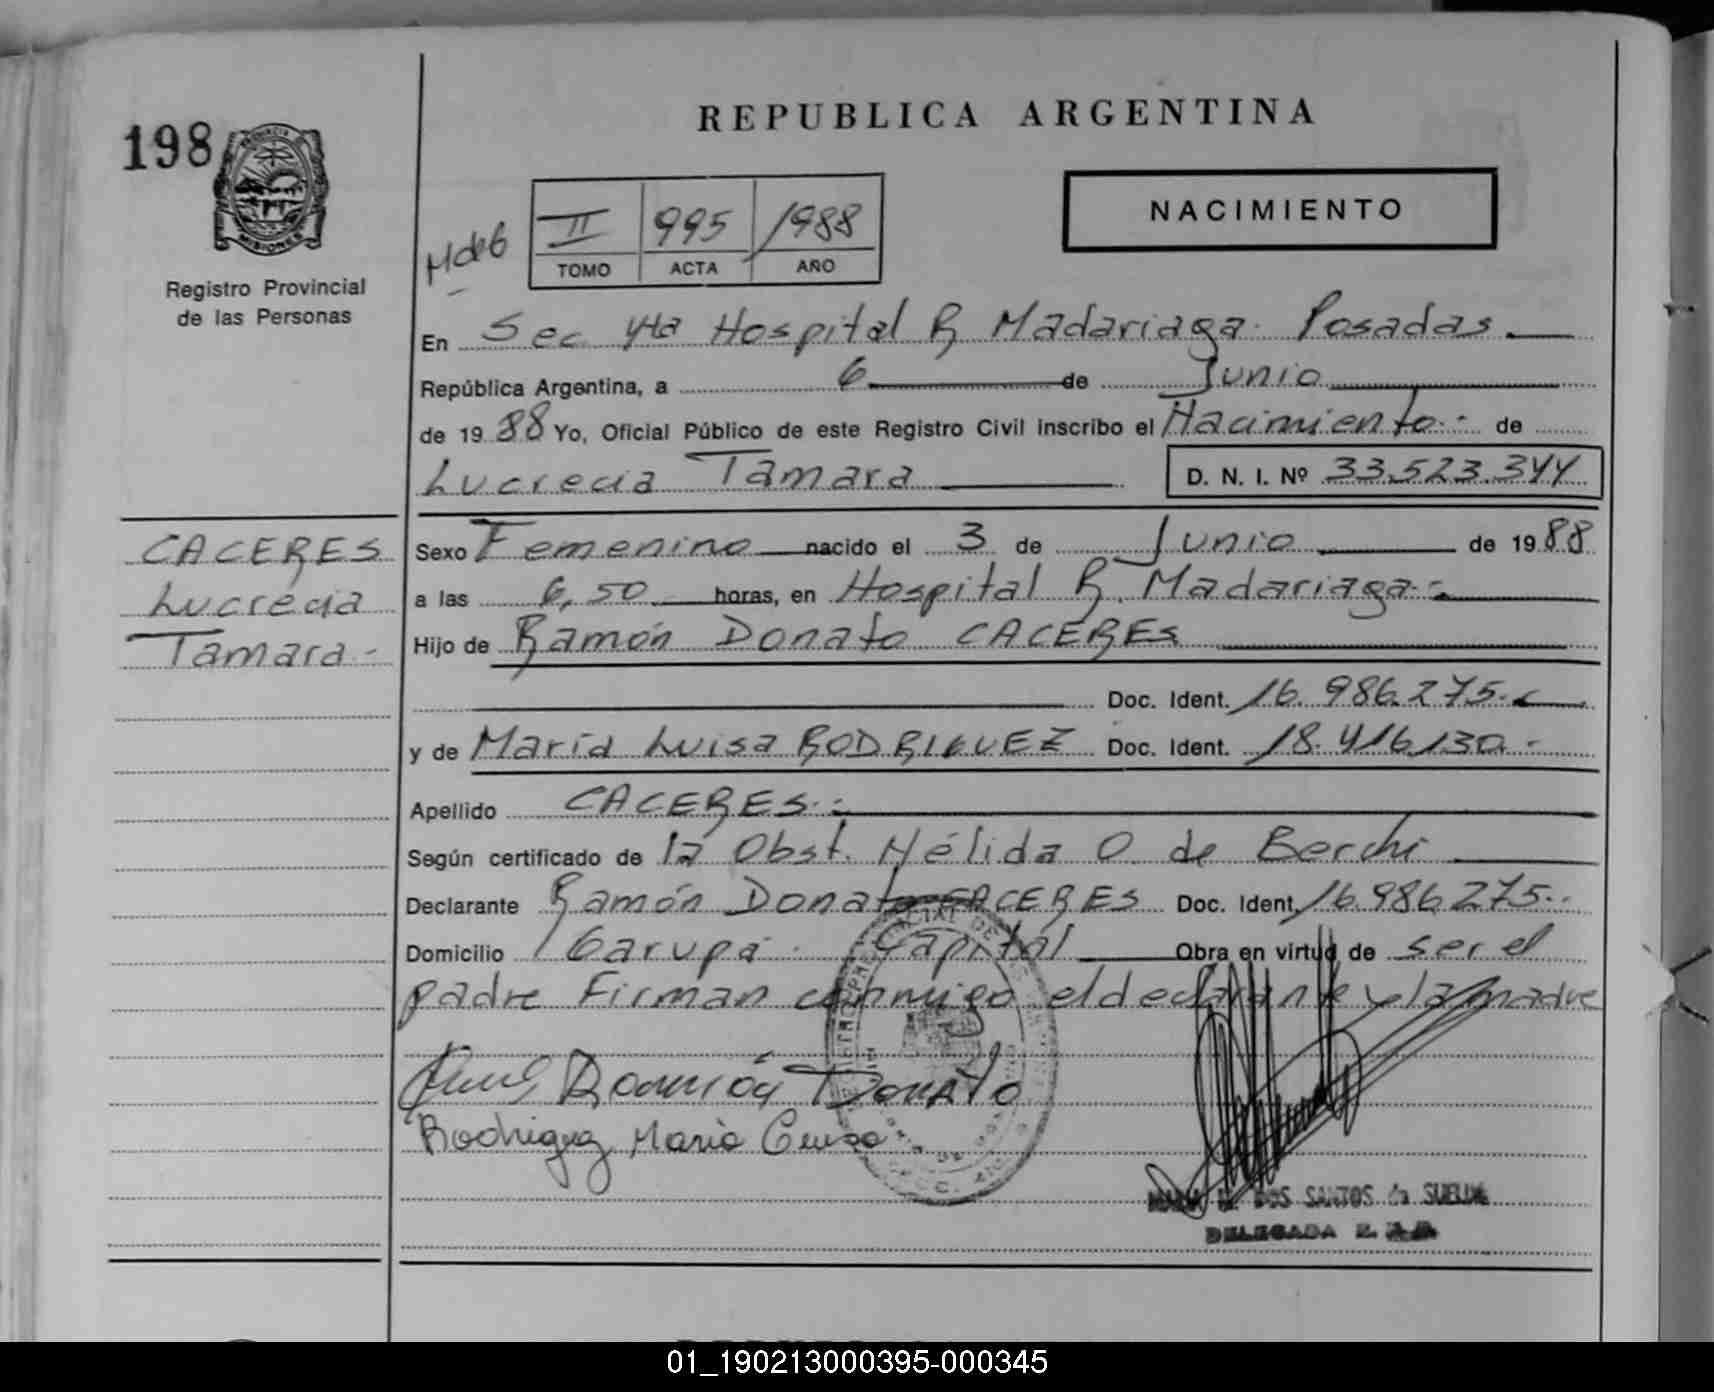 REPUBLICA ARGENTINA
198
PROVINCIA
MISIONES
Registro Provincial
de las Personas
II 995 1988
TOMO ACTA AÑO
NACIMIENTO
En Sec 4ta Hospital R Madariaga. Posadas.
República Argentina, a 6 de Junio
de 1988 Yo, Oficial Público de este Registro Civil inscribo el Nacimiento.- de
Lucrecia Tamara D. N. I. Nº 33.523.344
CACERES
Lucrecia
Tamara.-
Sexo Femenino nacido el 3 de Junio de 1988
a las 6,50 horas, en Hospital R. Madariaga.-
Hijo de Ramón Donato CACERES
Doc. Ident. 16.986.275.-
y de María Luisa RODRIGUEZ Doc. Ident. 18.416.130.-
Apellido CACERES.-
Según certificado de la Obst. Nélida O. de Berchi
Declarante Ramón Donato CACERES Doc. Ident. 16.986.275.-
Domicilio Garupá. Capital Obra en virtud de ser el
padre Firman conmigo el declarante y la madre
Ramón Donato
Rodriguez Maria Luisa
DOS SANTOS de
DELEGADA
01_190213000395-000345